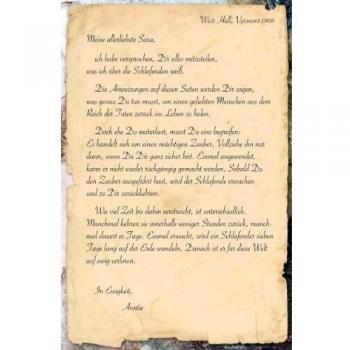 West Hall, Vermont 1908
Meine allerliebste Sara,
ich habe versprochen, Dir alles mitzuteilen,
was ich über die Schlafenden weiß.
Die Anweisungen auf diesen Seiten werden Dir sagen,
was genau Du tun musst, um einen geliebten Menschen aus dem
Reich der Toten zurück ins Leben zu holen.
Doch ehe Du weiterliest, musst Du eins begreifen:
Es handelt sich um einen mächtigen Zauber. Vollziehe ihn nur
dann, wenn Du Dir ganz sicher bist. Einmal angewendet,
kann er nicht wieder rückgängig gemacht werden. Sobald Du
den Zauber ausgeführt hast, wird der Schlafende erwachen
und zu Dir zurückkehren.
Wie viel Zeit bis dahin verstreicht, ist unterschiedlich.
Manchmal kehren sie innerhalb weniger Stunden zurück, manch-
mal dauert es Tage. Einmal erwacht, wird ein Schlafender sieben
Tage lang auf der Erde wandeln. Danach ist er für diese Welt
auf ewig verloren.
In Ewigkeit,
Auntie